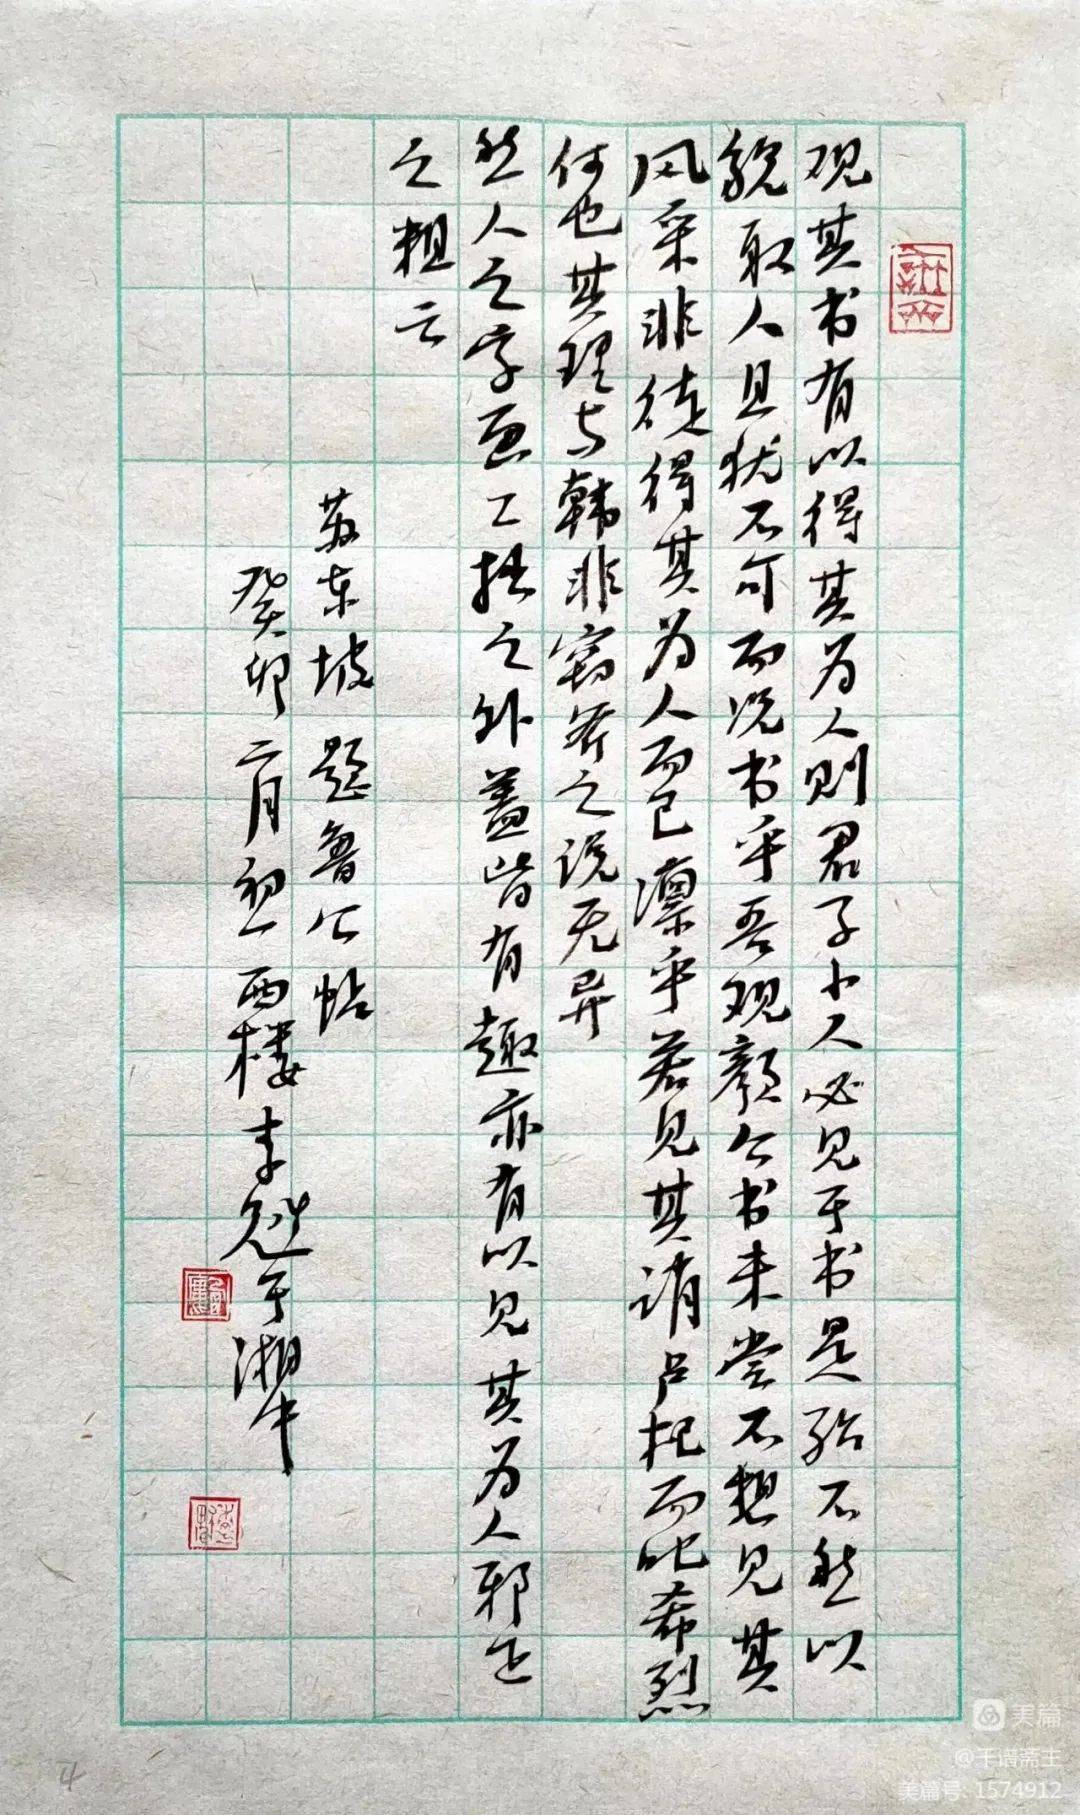 观其书有以得其为人则君子小人必见于书是殆不然以
貌取人且犹不可而况书乎吾观颜公书未尝不想见其
风采非徒得其为人而已凛乎若见其诮卢杞而叱希烈
何也其理与韩非窃斧之说无异
然人之字画工拙之外盖皆有趣亦有以见其为人邪正
之粗云
苏东坡题鲁公帖
癸卯二月初一西楼李于湘中
美篇
@千谱斋主
美篇号: 1574912
4